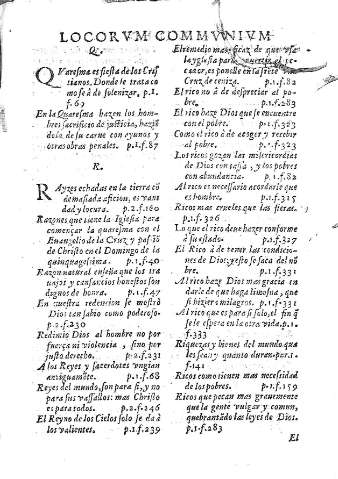 LOCORVM COMMVNIVM
Q.
QVaresma es fiesta de los Cris
tianos. Donde se trata co
mo se à de solenizar, p.1.
f.67
En la Quaresma hazen los hom-
bres sacrificio de justicia, hazië
dolo de su carne con ayunos y
otras obras penales. p.1.f.87
R.
RAyzes echadas en la tierra cõ
demasiada aficion, es vani
dad y locura. p.2.f.160
Razones que tiene la Iglesia para
començar la quaresma con el
Euangelio de la Cruz y passiõ
de Christo en el Domingo de la
quinquagesima. p.1.f.40
Razon natural enseña que los tra
uajos y cansancios honestos son
dignos de honra. p.1.f.47
En nuestra redencion se mostrò
Dios tan sabio como poderoso.
p.2.f.230
Redimio Dios al hombre no por
fuerça ni violencia, sino por
justo derecho. p.2.f.231
A los Reyes y sacerdotes vngian
antiguamente. p.1.f.68
Reyes del mundo, son para si, y no
para sus vassallos: mas Christo
es para todos. p.2.f.246
El Reyno de los Cielos solo se dà à
los valientes. p.1.f.239
El remedio mas eficaz de que vsa
la yglesia para
cador, es ponelle en la
Cruz de ceniza. p.1.f.82
El rico no à de despreciar al po-
bre. p.1.f.283
El rico haze Dios que se encuentre
con el pobre. p.1.f.323
Como el rico à de acoger y recebir
al pobre. p.1.f.323
Los ricos gozan las misericordias
de Dios con tassa, y los pobres
con abundancia. p.1.f.82
Al rico es necessario acordarle que
es hombre. p.1.f.315
Ricos mas crueles que las fieras.
p.1.f.326
Lo que el rico deue hazer conforme
à su estado. p.1.f.327
El Rico à de tener las condicio-
nes de Dios: esto se saca del nõ
bre. p.1.f.331
Al rico haze Dios mas gracia en
darle de que haga limosna, que
si hiziera milagros. p.1.f.331
Al rico que es para si solo, el fin q̃
se le espera en la otra vida. p.1.
f.333
Riquezas y bienes del mundo que
les sean y quanto duran. par.1.
f.141
Ricos como tienen mas necesidad
de los pobres. p.1.f.159
Ricos que pecan mas grauemente
que la gente vulgar y comun,
quebrantando las leyes de Dios.
p.1.f.283
El